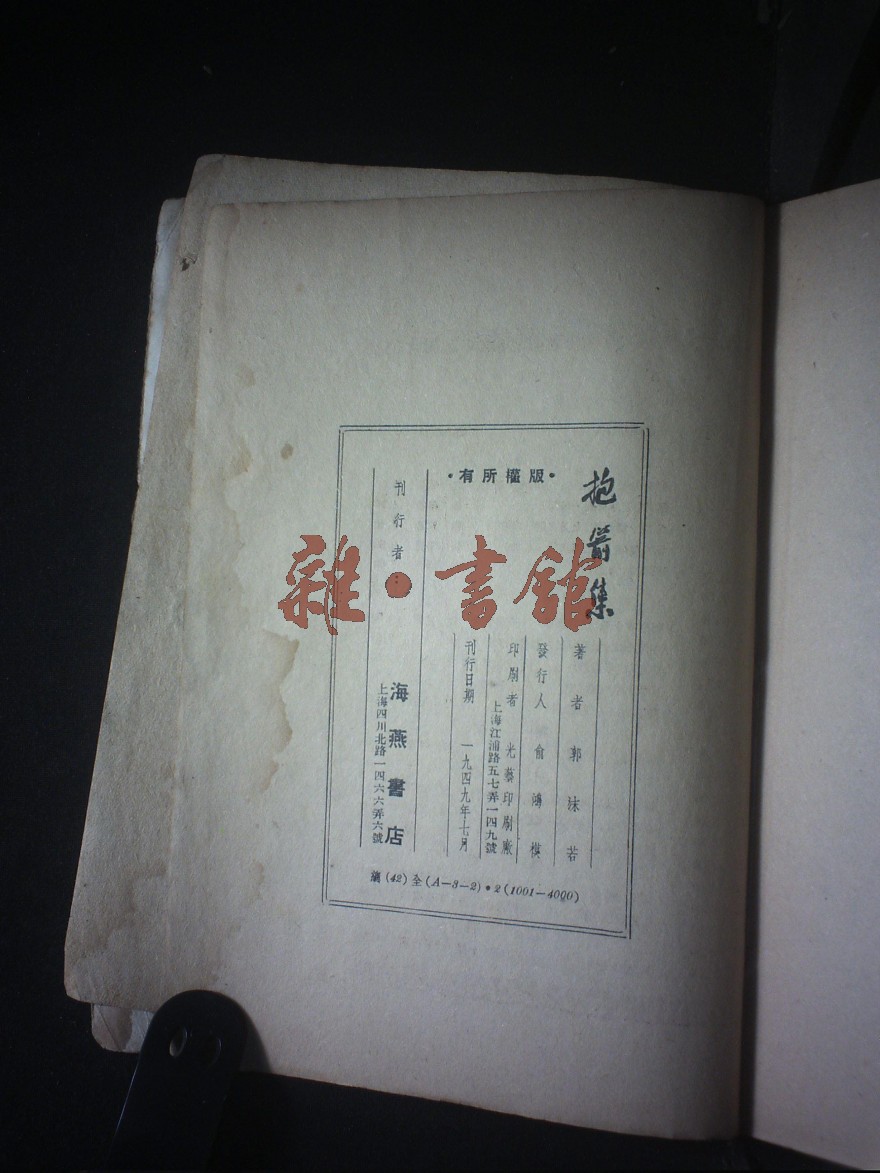 抱箭集
著者 郭沫若
發行人 俞鴻模
印刷者 光藝印刷廠
上海江浦路五七弄一四九號
刊行日期 一九四九年七月
·版權所有·
刊行者：
海燕書店
上海四川北路一四六六弄六號
編(42)全(A-3-2)·2(1001-4000)
雜·書館